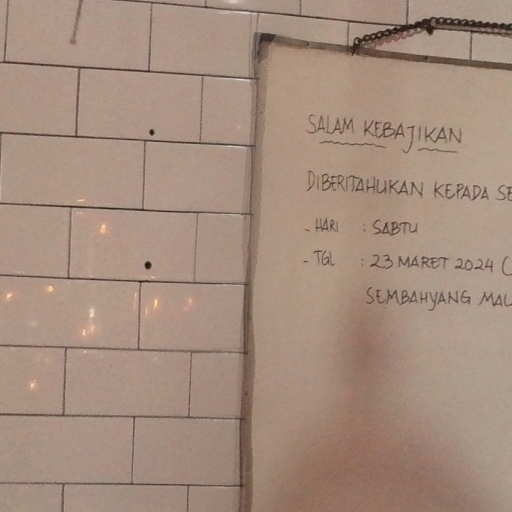 SALAM KEBAJIKAN
DIBERITAHUKAN KEPADA SE
- HARI : SABTU
- TGL : 23 MARET 2024 (
SEMBAHYANG MAL